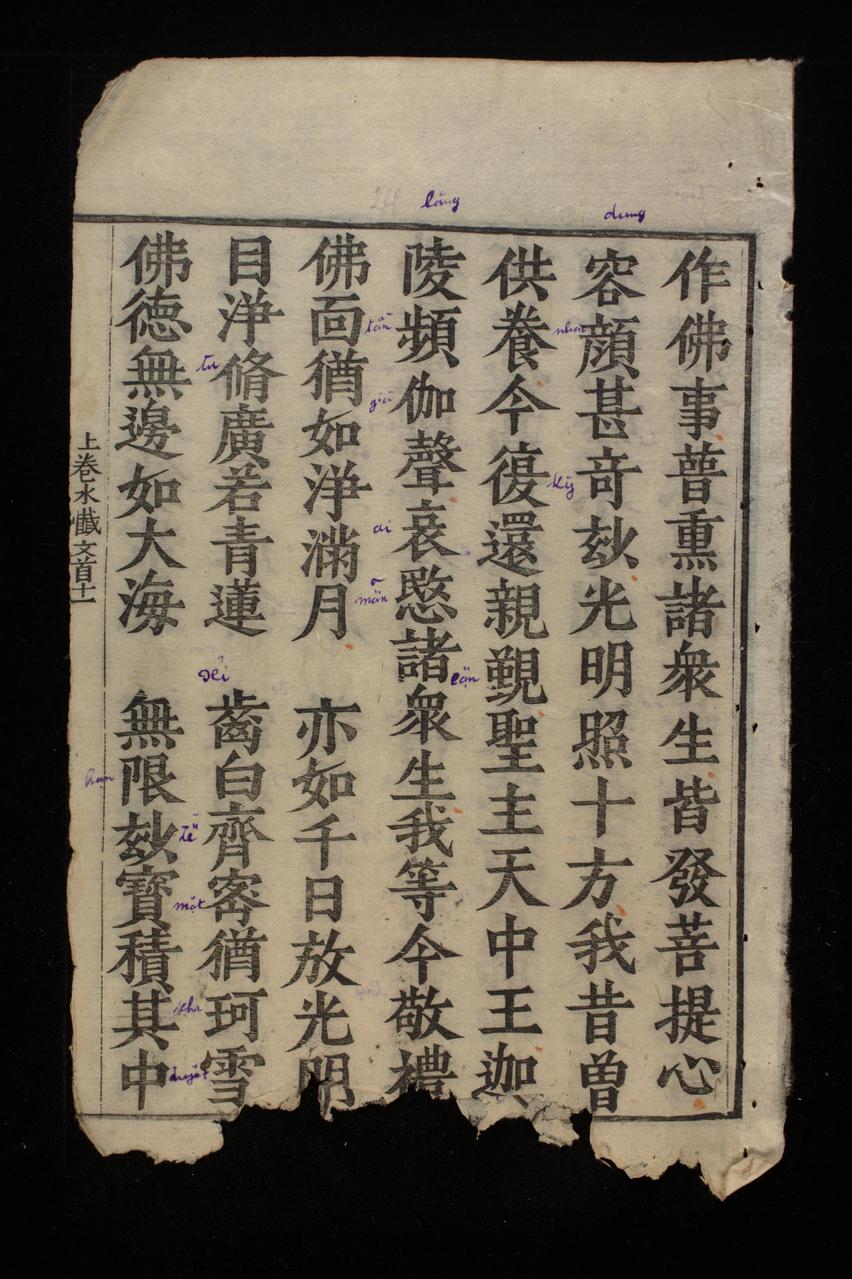 作佛事普熏諸衆生皆發菩提心
容顔甚竒玅光明照十方我昔曽
供養今復還親覲聖主天中王迦
陵頻伽聲哀愍諸衆生我等今敬禮
佛面猶如淨滿月　亦如千日放光明
目淨脩廣若青蓮　齒白齊宻猶珂雪
佛德無邊如大海　無限玅寶積其中
上卷水懺文首十一
lăng
dung
nhan
tần
già
kỳ
ai
mẫn
cận
tu
xỉ
hạn
tề
mật
kha
tuyết